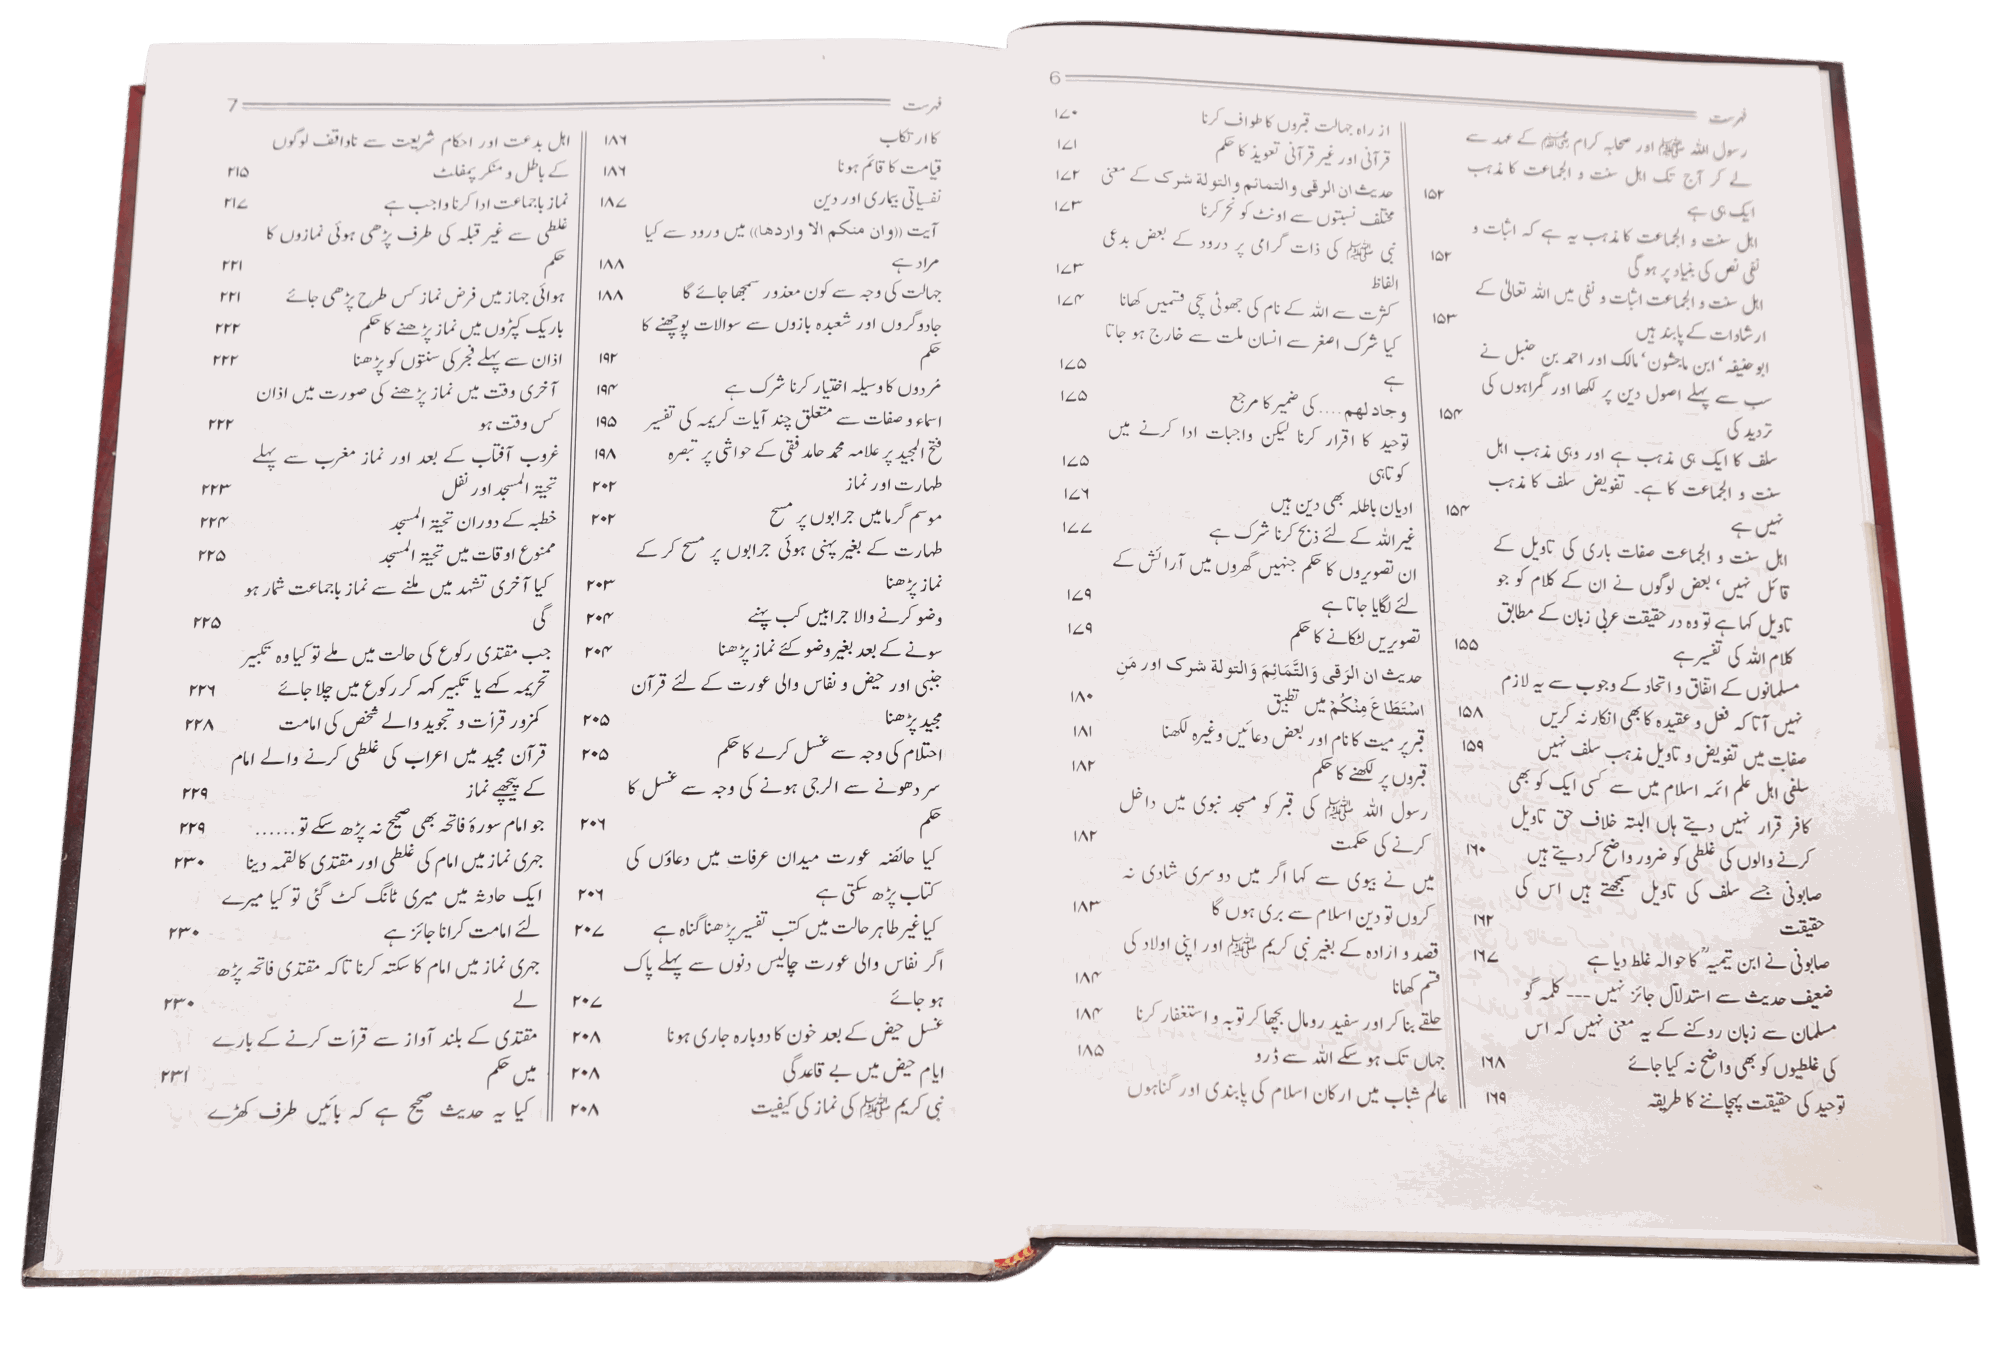 6
فہرست
رسول اللہ ﷺ اور صحابہ کرام ﷺ کے عہد سے
لے کر آج تک اہل سنت و الجماعت کا مذہب
ایک ہی ہے ۱۵۲
اہل سنت و الجماعت کا مذہب یہ ہے کہ اثبات و
نفی نص کی بنیاد پر ہو گی ۱۵۲
اہل سنت و الجماعت اثبات و نفی میں اللہ تعالیٰ کے
ارشادات کے پابند ہیں ۱۵۳
ابو حنیفہ‘ ابن ماجشون‘ مالک اور احمد بن حنبل نے
سب سے پہلے اصول دین پر لکھا اور گمراہوں کی
تردید کی ۱۵۴
سلف کا ایک ہی مذہب ہے اور وہی مذہب اہل
سنت و الجماعت کا ہے۔ تفویض سلف کا مذہب
نہیں ہے ۱۵۴
اہل سنت و الجماعت صفات باری کی تاویل کے
قائل نہیں‘ بعض لوگوں نے ان کے کلام کو جو
تاویل کہا ہے تو وہ در حقیقت عربی زبان کے مطابق
کلام اللہ کی تفسیر ہے ۱۵۵
مسلمانوں کے اتفاق و اتحاد کے وجوب سے یہ لازم
نہیں آتا کہ فعل و عقیدہ کا بھی انکار نہ کریں ۱۵۸
صفات میں تفویض و تاویل مذہب سلف نہیں ۱۵۹
سلفی اہل علم ائمہ اسلام میں سے کسی ایک کو بھی
کافر قرار نہیں دیتے ہاں البتہ خلاف حق تاویل
کرنے والوں کی غلطی کو ضرور واضح کر دیتے ہیں ۱۶۰
صابونی جسے سلف کی تاویل سمجھتے ہیں اس کی
حقیقت ۱۶۲
صابونی نے ابن تیمیہؒ کا حوالہ غلط دیا ہے ۱۶۷
ضعیف حدیث سے استدلال جائز نہیں --- کلمہ گو
مسلمان سے زبان روکنے کے یہ معنی نہیں کہ اس
کی غلطیوں کو بھی واضح نہ کیا جائے ۱۶۸
توحید کی حقیقت پہچاننے کا طریقہ ۱۶۹
از راہ جہالت قبروں کا طواف کرنا ۱۷۰
قرآنی اور غیر قرآنی تعویذ کا حکم ۱۷۱
حدیث ان الرقی والتمائم والتولة شرک کے معنی ۱۷۲
مختلف نسبتوں سے اونٹ کو نحر کرنا ۱۷۳
نبی ﷺ کی ذات گرامی پر درود کے بعض بدعی
الفاظ ۱۷۳
کثرت سے اللہ کے نام کی جھوٹی سچی قسمیں کھانا ۱۷۴
کیا شرک اصغر سے انسان ملت سے خارج ہو جاتا
ہے ۱۷۵
وجادلهم .... کی ضمیر کا مرجع ۱۷۵
توحید کا اقرار کرنا لیکن واجبات ادا کرنے میں
کوتاہی ۱۷۵
ادیان باطلہ بھی دین ہیں ۱۷۶
غیر اللہ کے لئے ذبح کرنا شرک ہے ۱۷۷
ان تصویروں کا حکم جنہیں گھروں میں آرائش کے
لئے لگایا جاتا ہے ۱۷۹
تصویریں لٹکانے کا حکم ۱۷۹
حدیث ان الرَقی وَالتَّمَائِمَ وَالتولة شرک اور مَنِ
اسْتَطَاعَ مِنْكُمْ میں تطبیق ۱۸۰
قبر پر میت کا نام اور بعض دعائیں وغیرہ لکھنا ۱۸۱
قبروں پر لکھنے کا حکم ۱۸۲
رسول اللہ ﷺ کی قبر کو مسجد نبوی میں داخل
کرنے کی حکمت ۱۸۲
میں نے بیوی سے کہا اگر میں دوسری شادی نہ
کروں تو دین اسلام سے بری ہوں گا ۱۸۳
قصد و ارادہ کے بغیر نبی کریم ﷺ اور اپنی اولاد کی
قسم کھانا ۱۸۴
حلقے بنا کر اور سفید رومال بچھا کر توبہ و استغفار کرنا ۱۸۴
جہاں تک ہو سکے اللہ سے ڈرو ۱۸۵
عالم شباب میں ارکان اسلام کی پابندی اور گناہوں
7
فہرست
کا ارتکاب ۱۸۶
قیامت کا قائم ہونا ۱۸۶
نفسیاتی بیماری اور دین ۱۸۷
آیت ((وان منكم الا واردها)) میں ورود سے کیا
مراد ہے ۱۸۸
جہالت کی وجہ سے کون معذور سمجھا جائے گا ۱۸۸
جادوگروں اور شعبدہ بازوں سے سوالات پوچھنے کا
حکم ۱۹۲
مُردوں کا وسیلہ اختیار کرنا شرک ہے ۱۹۴
اسماء و صفات سے متعلق چند آیات کریمہ کی تفسیر ۱۹۵
فتح المجید پر علامہ محمد حامد فقی کے حواشی پر تبصرہ ۱۹۸
طہارت اور نماز ۲۰۲
موسم گرما میں جرابوں پر مسح ۲۰۲
طہارت کے بغیر پہنی ہوئی جرابوں پر مسح کر کے
نماز پڑھنا ۲۰۳
وضو کرنے والا جرابیں کب پہنے ۲۰۴
سونے کے بعد بغیر وضو کئے نماز پڑھنا ۲۰۴
جنبی اور حیض و نفاس والی عورت کے لئے قرآن
مجید پڑھنا ۲۰۵
احتلام کی وجہ سے غسل کرلے کا حکم ۲۰۵
سر دھونے سے الرجی ہونے کی وجہ سے غسل کا
حکم ۲۰۶
کیا حائضہ عورت میدان عرفات میں دعاؤں کی
کتاب پڑھ سکتی ہے ۲۰۶
کیا غیر طاہر حالت میں کتب تفسیر پڑھنا گناہ ہے ۲۰۷
اگر نفاس والی عورت چالیس دنوں سے پہلے پاک
ہو جائے ۲۰۷
غسل حیض کے بعد خون کا دوبارہ جاری ہونا ۲۰۸
ایام حیض میں بے قاعدگی ۲۰۸
نبی کریم ﷺ کی نماز کی کیفیت ۲۰۸
اہل بدعت اور احکام شریعت سے ناواقف لوگوں
کے باطل و منکر پمفلٹ ۲۱۵
نماز باجماعت ادا کرنا واجب ہے ۲۱۷
غلطی سے غیر قبلہ کی طرف پڑھی ہوئی نمازوں کا
حکم ۲۲۱
ہوائی جہاز میں فرض نماز کس طرح پڑھی جائے ۲۲۱
باریک کپڑوں میں نماز پڑھنے کا حکم ۲۲۲
اذان سے پہلے فجر کی سنتوں کو پڑھنا ۲۲۲
آخری وقت میں نماز پڑھنے کی صورت میں اذان
کس وقت ہو ۲۲۲
غروب آفتاب کے بعد اور نماز مغرب سے پہلے
تحیۃ المسجد اور نفل ۲۲۳
خطبہ کے دوران تحیۃ المسجد ۲۲۴
ممنوع اوقات میں تحیۃ المسجد ۲۲۵
کیا آخری تشہد میں ملنے سے نماز باجماعت شمار ہو
گی ۲۲۵
جب مقتدی رکوع کی حالت میں ملے تو کیا وہ تکبیر
تحریمہ کہے یا تکبیر کہہ کر رکوع میں چلا جائے ۲۲۶
کمزور قرأت و تجوید والے شخص کی امامت ۲۲۸
قرآن مجید میں اعراب کی غلطی کرنے والے امام
کے پیچھے نماز ۲۲۹
جو امام سورۂ فاتحہ بھی صحیح نہ پڑھ سکے تو...... ۲۲۹
جہری نماز میں امام کی غلطی اور مقتدی کا لقمہ دینا ۲۳۰
ایک حادثہ میں میری ٹانگ کٹ گئی تو کیا میرے
لئے امامت کرانا جائز ہے ۲۳۰
جہری نماز میں امام کا سکتہ کرنا تاکہ مقتدی فاتحہ پڑھ
لے ۲۳۰
مقتدی کے بلند آواز سے قرأت کرنے کے بارے
میں حکم ۲۳۱
کیا یہ حدیث صحیح ہے کہ بائیں طرف کھڑے